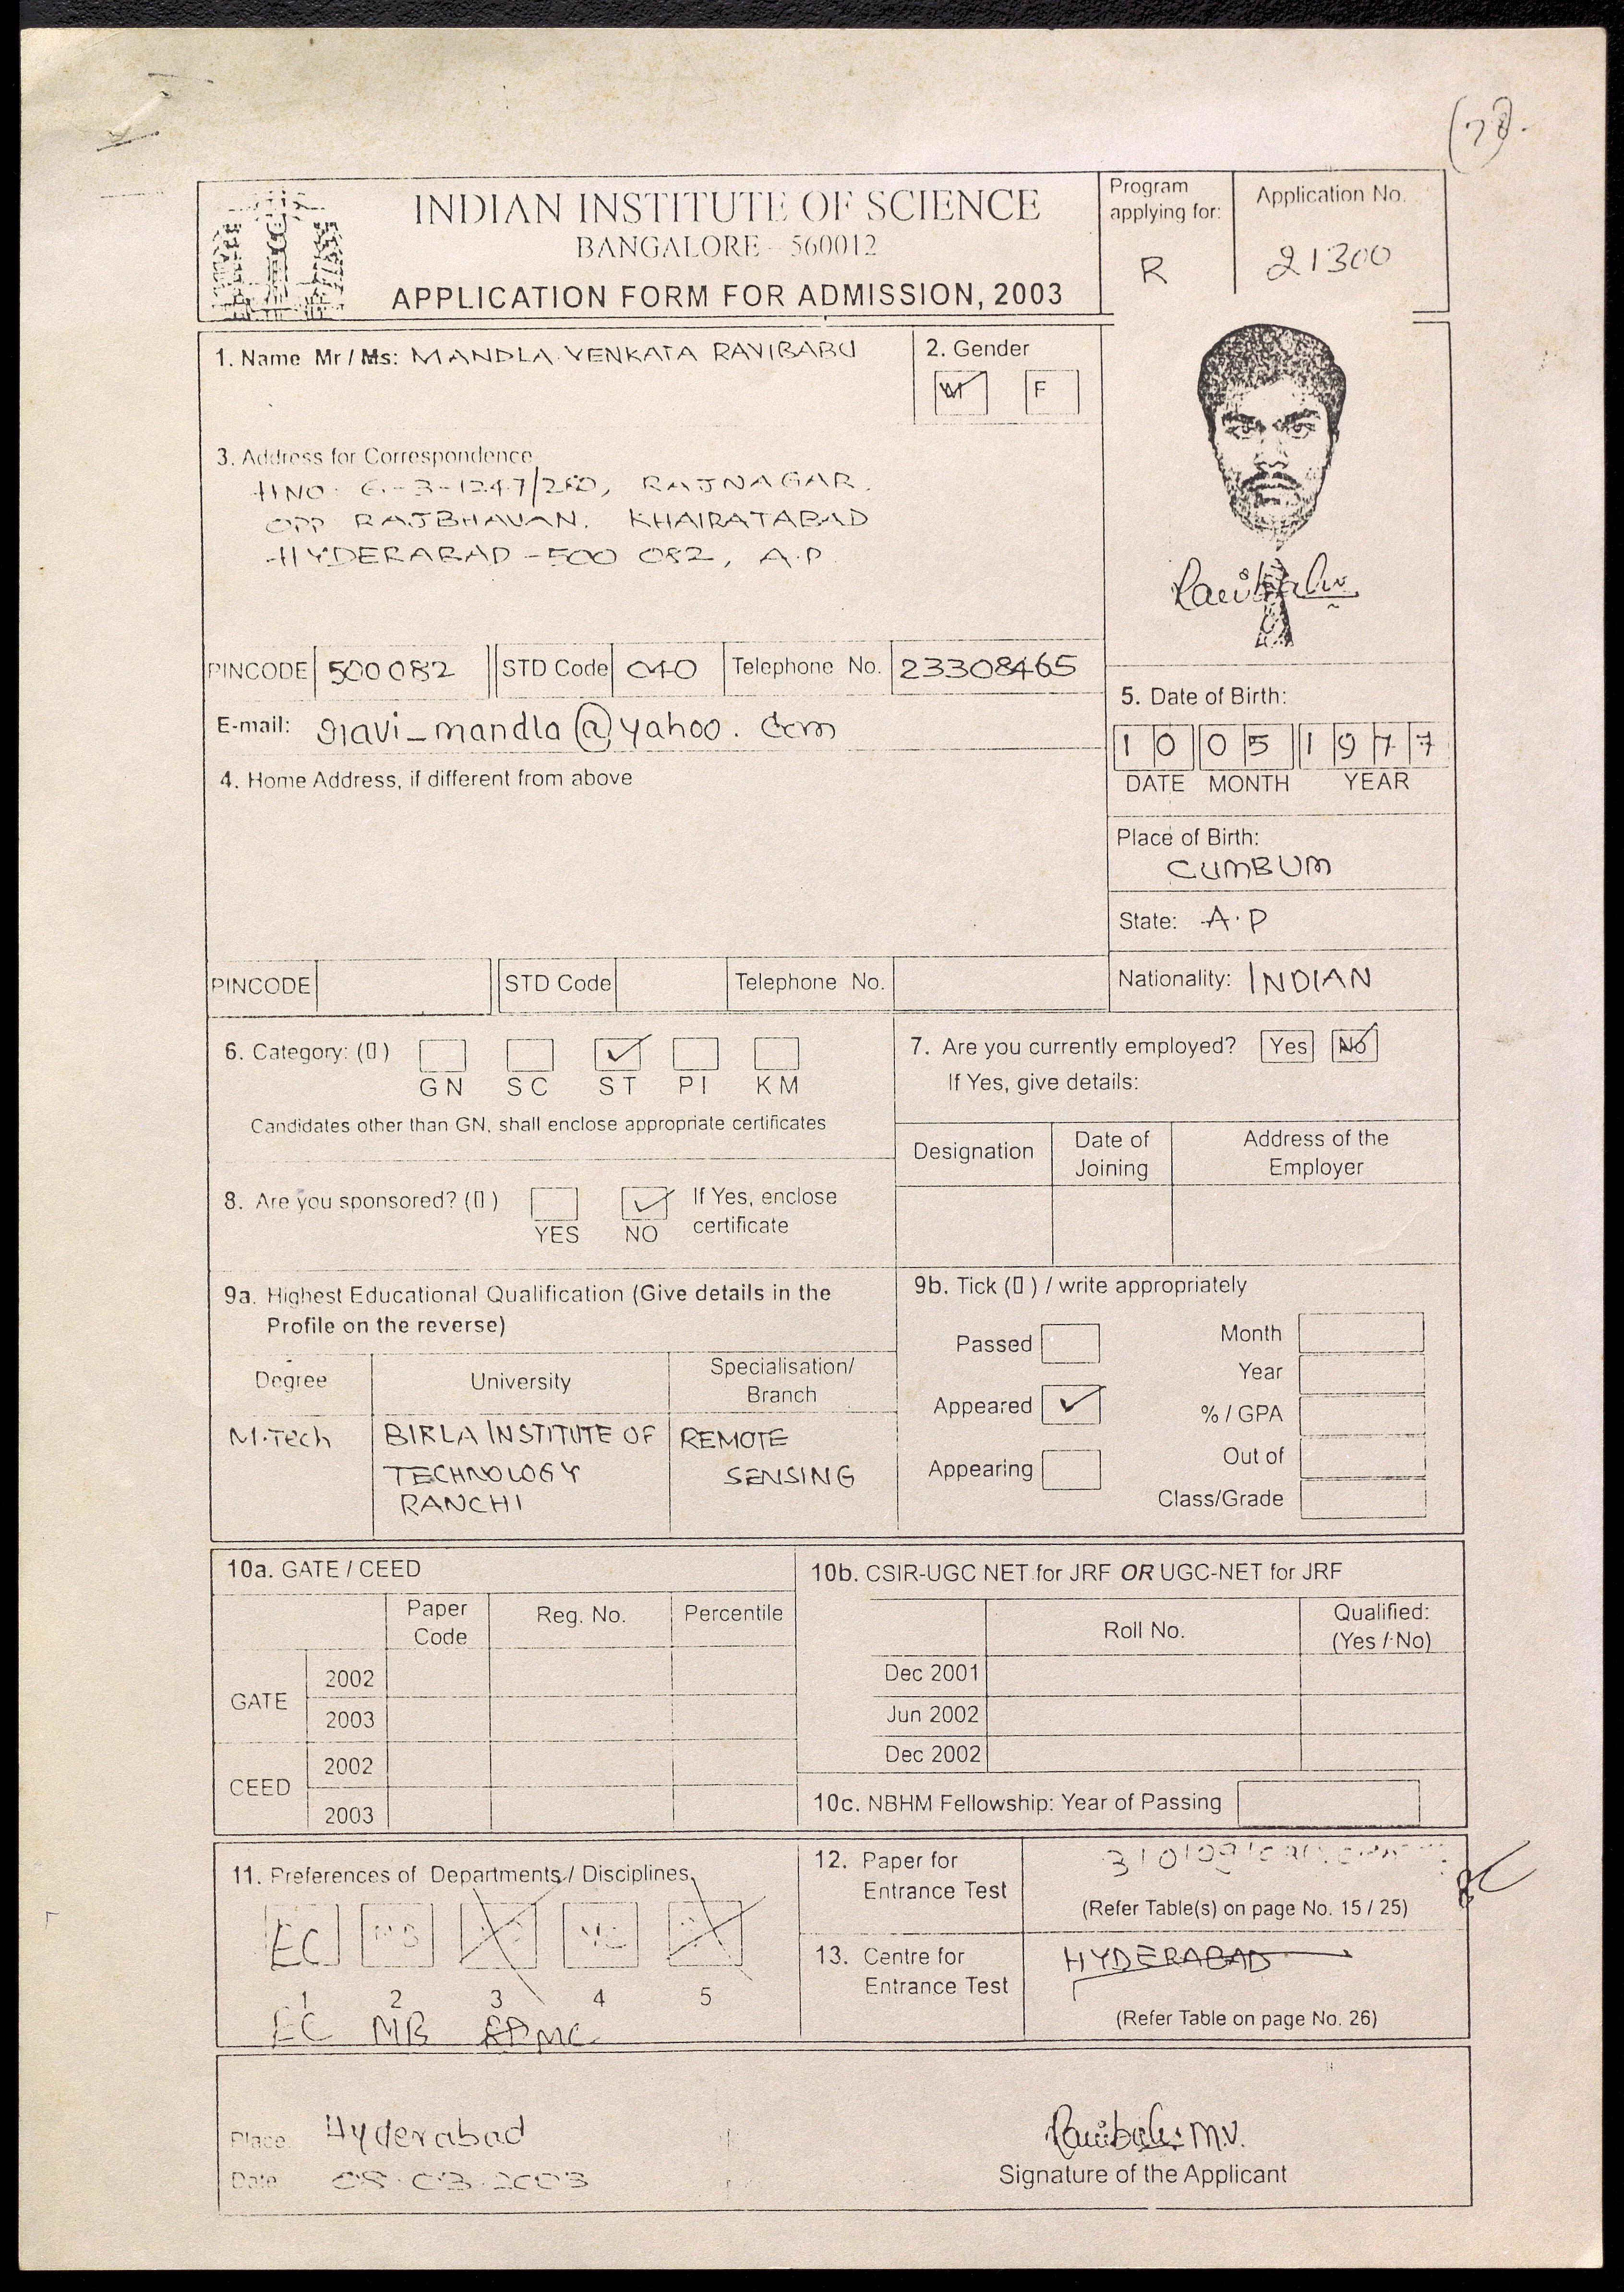 (78).
INDIAN INSTITUTE OF SCIENCE
BANGALORE - 560012
APPLICATION FORM FOR ADMISSION, 2003
Program
applying for:
R
Application No.
21300
1. Name Mr / Ms: MANDLA VENKATA RAVIBABU
2. Gender
M F
3. Address for Correspondence
HNO. 6-3-1247/280, RAJNAGAR.
OPP RAJBHAVAN. KHAIRATABAD
HYDERABAD - 500 082, A.P
Ravibabu
PINCODE 500082 STD Code 040 Telephone No. 23308465
E-mail: ravi_mandla@yahoo.com
4. Home Address, if different from above
5. Date of Birth:
1 0 0 5 1 9 7 7
DATE MONTH YEAR
Place of Birth:
CUMBUM
State: A.P
Nationality: INDIAN
PINCODE STD Code Telephone No.
6. Category: (▯)
GN SC ST PI KM
Candidates other than GN, shall enclose appropriate certificates
7. Are you currently employed? Yes No
If Yes, give details:
Designation
Date of
Joining
Address of the
Employer
8. Are you sponsored? (▯) If Yes, enclose
YES NO certificate
9a. Highest Educational Qualification (Give details in the
Profile on the reverse)
Degree University Specialisation/
Branch
M.Tech BIRLA INSTITUTE OF REMOTE
TECHNOLOGY SENSING
RANCHI
9b. Tick (▯) / write appropriately
Passed Month
Year
Appeared % / GPA
Appearing Out of
Class/Grade
10a. GATE / CEED
Paper
Code
Reg. No. Percentile
GATE
2002
2003
CEED
2002
2003
10b. CSIR-UGC NET for JRF OR UGC-NET for JRF
Roll No.
Qualified:
(Yes / No)
Dec 2001
Jun 2002
Dec 2002
10c. NBHM Fellowship: Year of Passing
11. Preferences of Departments / Disciplines
EC MB
1 2 3 4 5
EC MB MC
12. Paper for
Entrance Test
(Refer Table(s) on page No. 15 / 25)
13. Centre for
Entrance Test
HYDERABAD
(Refer Table on page No. 26)
Place: Hyderabad
Date 08.03.2003
Ravibabu M.V.
Signature of the Applicant